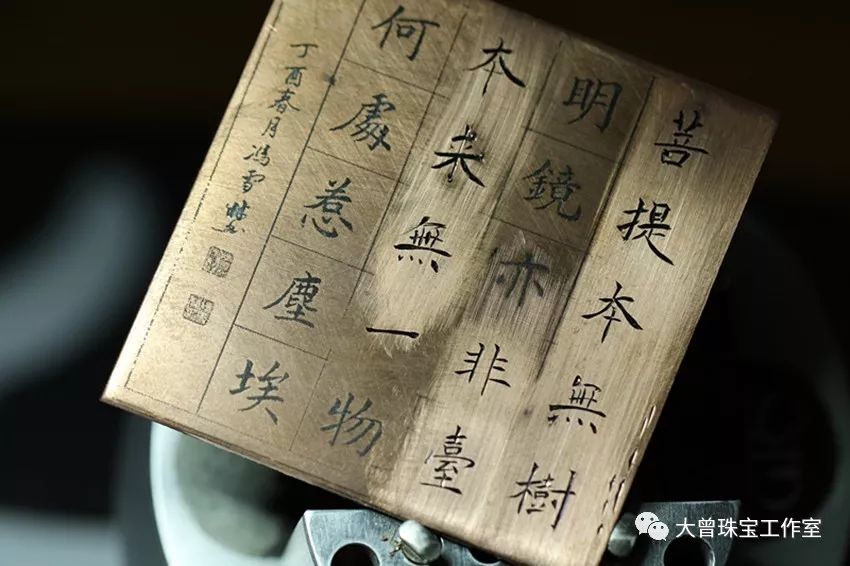 菩提本無樹
明鏡亦非臺
本来無一物
何處惹塵埃
丁酉春月馮雪
大曾珠宝工作室